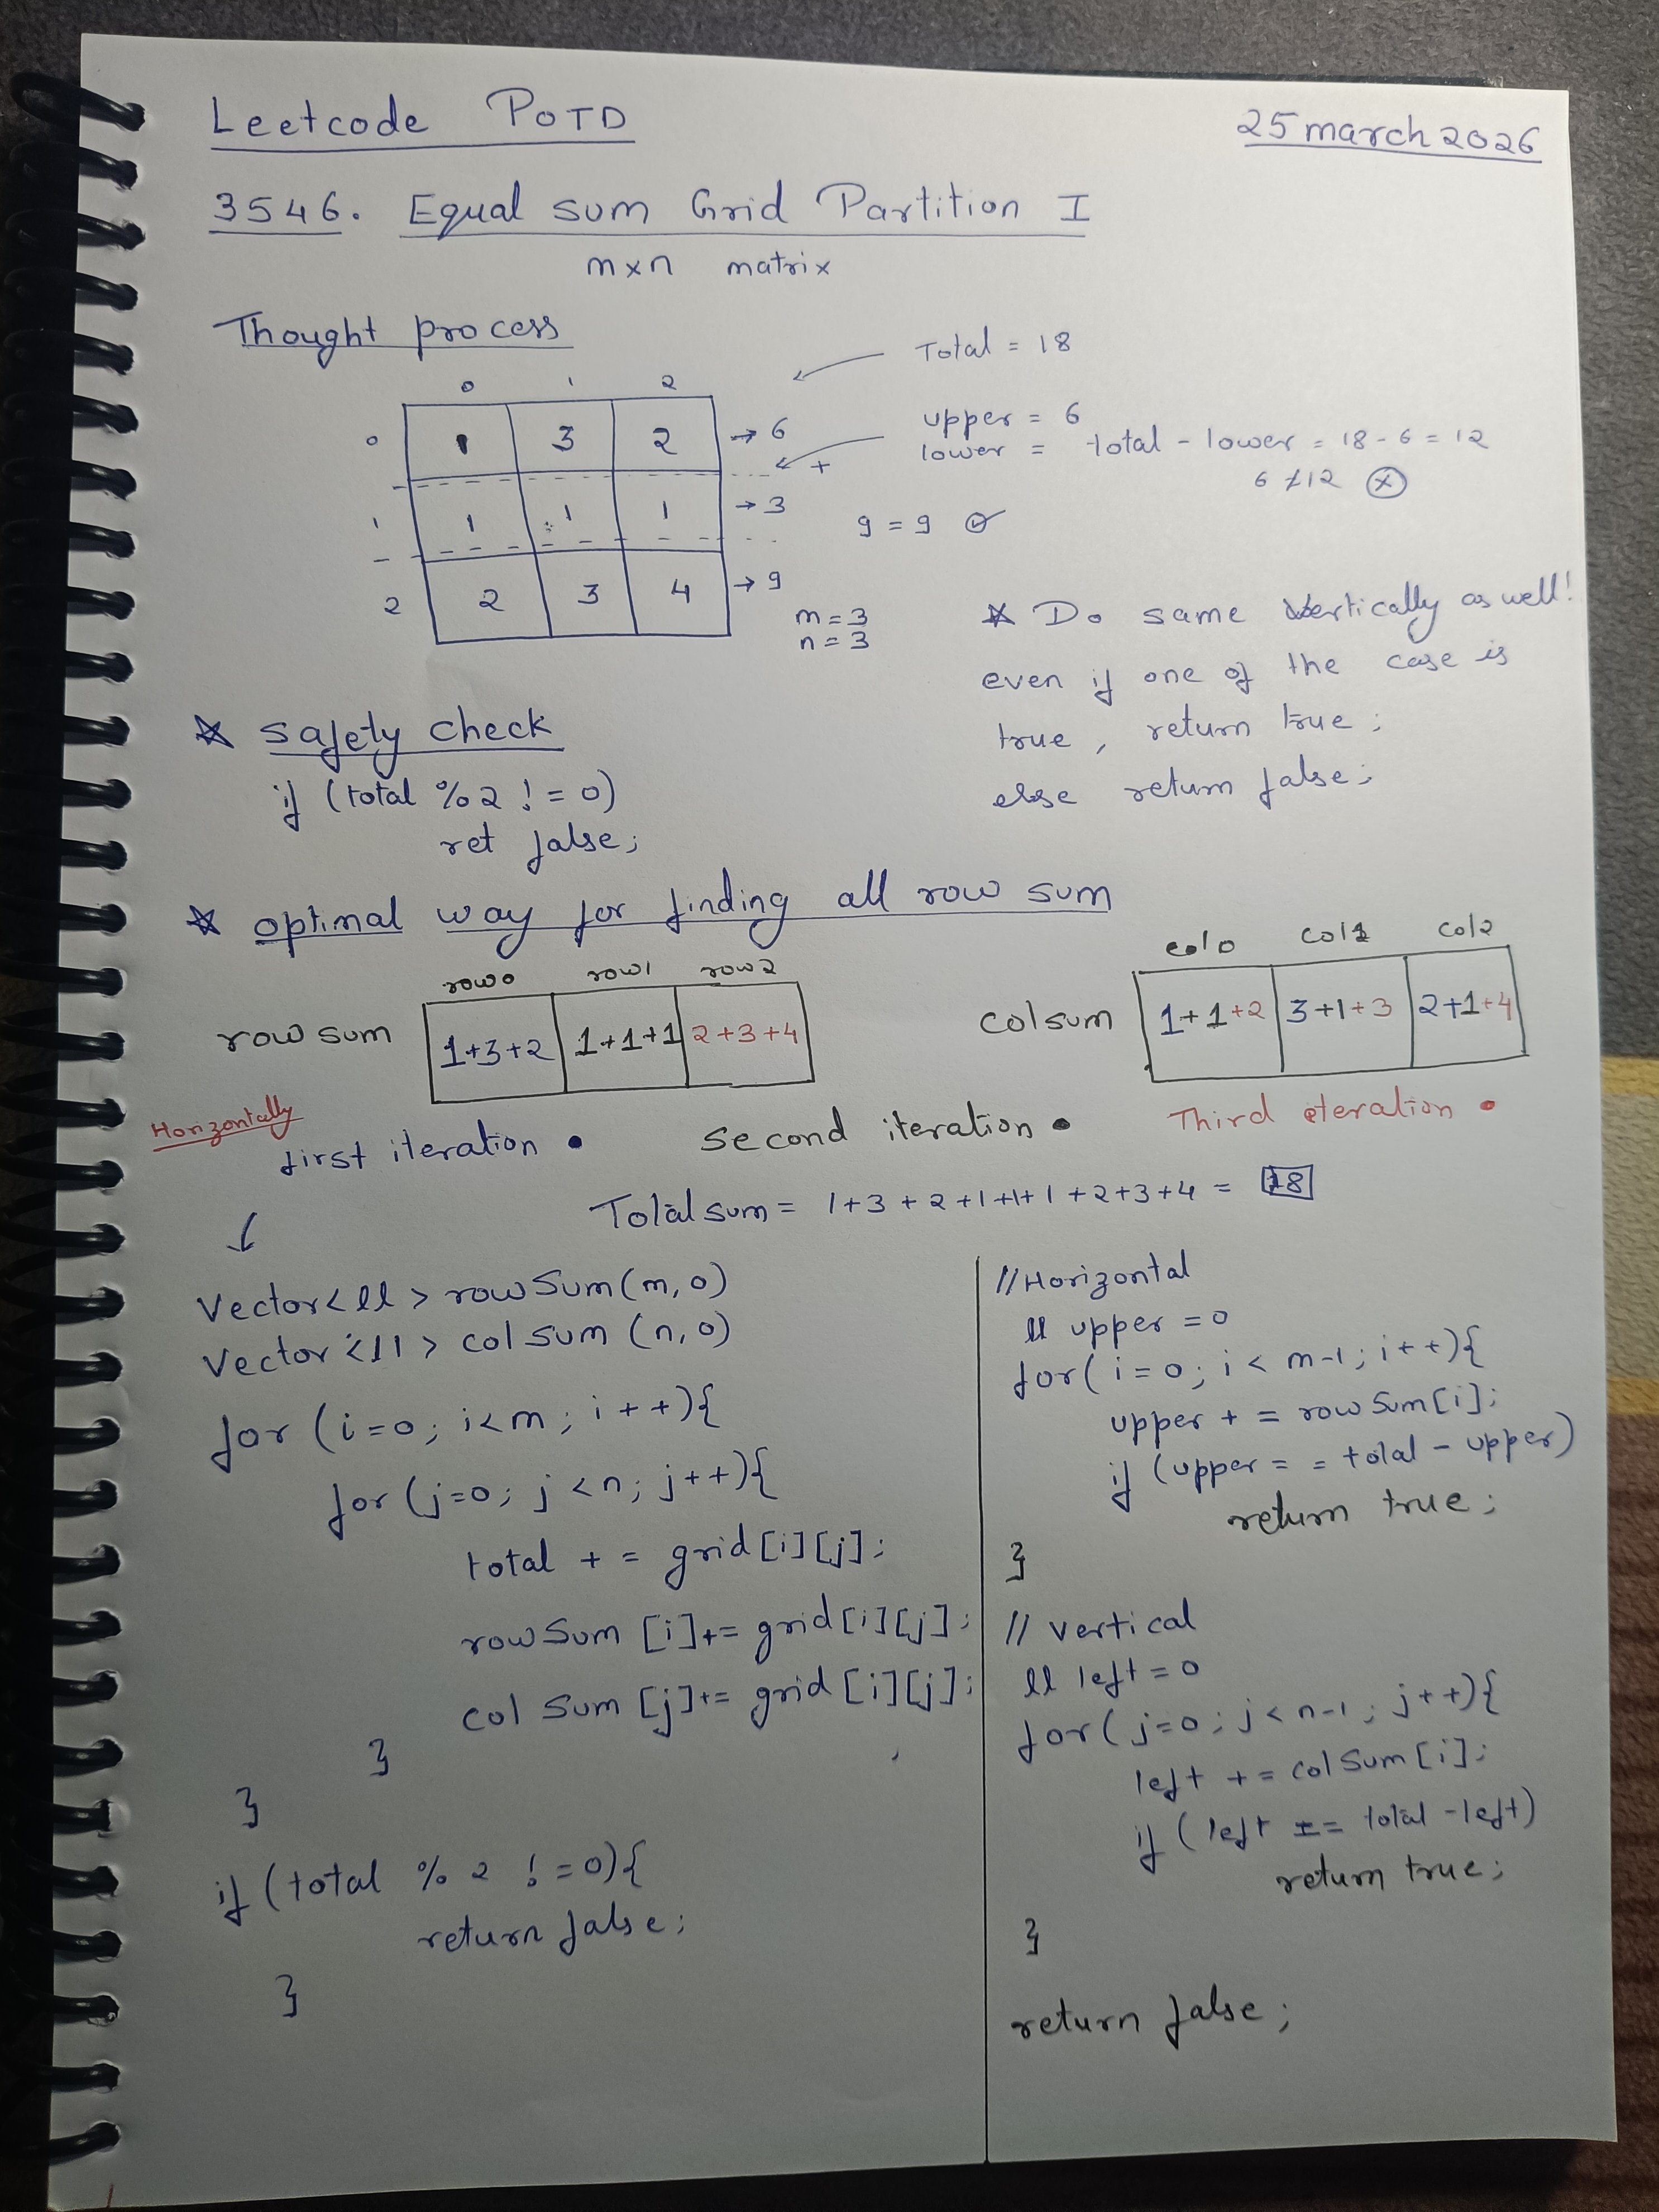 Leetcode POTD
25 march 2026
3546. Equal sum Grid Partition I
m×n matrix
Thought process
Total = 18
0 1 2
0 1 3 2 → 6
upper = 6
lower = total - lower = 18 - 6 = 12
+
6 ≠ 12 ⓧ
1 1 1 1 → 3
9 = 9
2 2 3 4 → 9
m = 3
n = 3
* Do same vertically as well!
even if one of the case is
true, return true;
else return false;
* safety check
if (total % 2 != 0)
ret false;
* optimal way for finding all row sum
row0 row1 row2
row sum 1+3+2 1+1+1 2+3+4
col0 col1 col2
colsum 1+1+2 3+1+3 2+1+4
Horizontally
first iteration • second iteration • Third iteration •
Total sum = 1+3+2+1+1+1+2+3+4 = 18
Vector<ll> rowSum(m,0)
Vector<ll> colSum(n,0)
for (i=0; i<m; i++){
for (j=0; j<n; j++){
total += grid[i][j];
rowSum[i]+= grid[i][j];
col Sum[j]+= grid[i][j];
}
}
if (total % 2 != 0){
return false;
}
//Horizontal
ll upper = 0
for(i=0; i<m-1; i++){
upper += rowSum[i];
if (upper == total - upper)
return true;
}
// vertical
ll left = 0
for(j=0; j<n-1; j++){
left += colSum[i];
if (left == total - left)
return true;
}
return false;